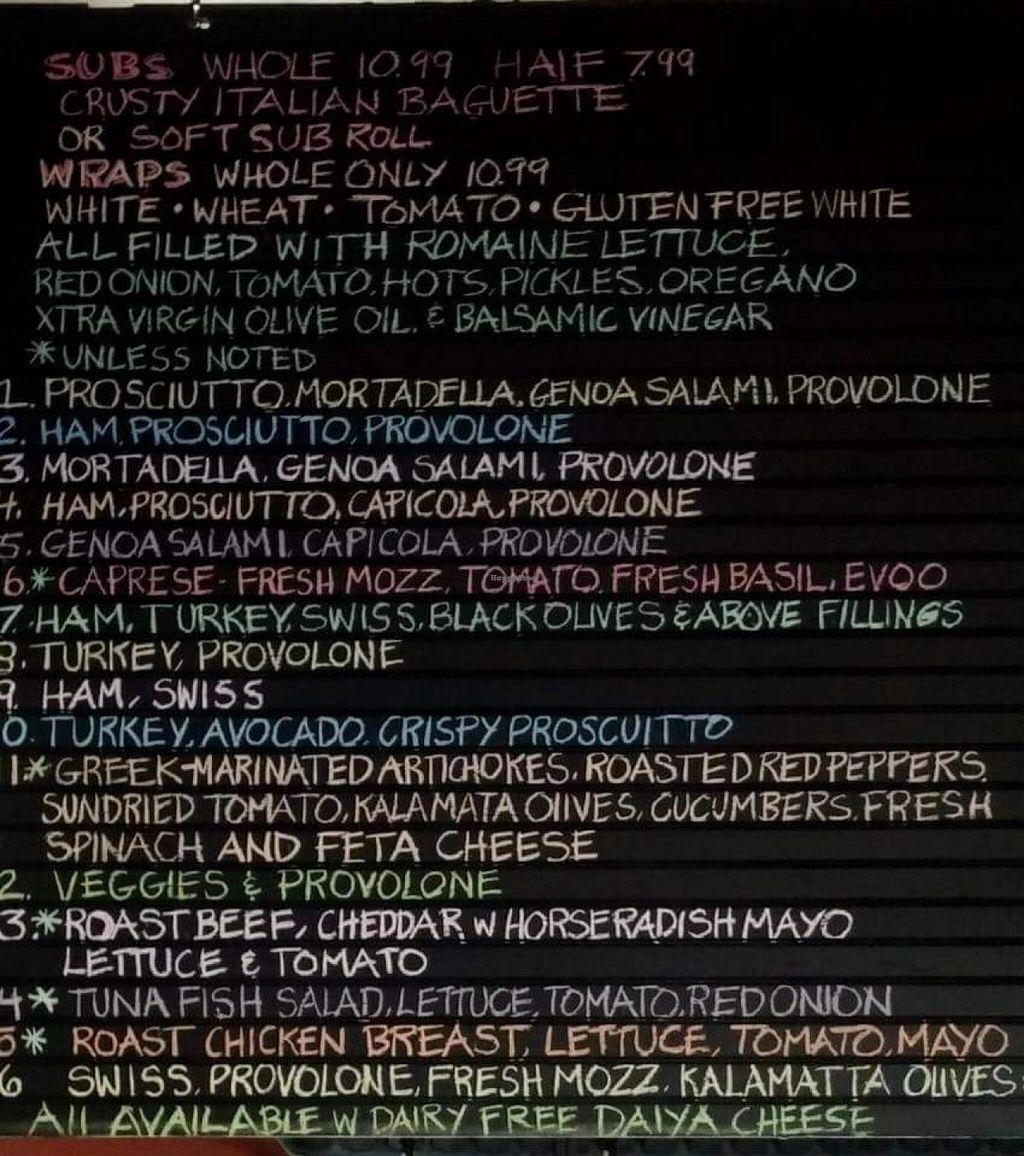 SUBS WHOLE 10.99 HALF 7.99
CRUSTY ITALIAN BAGUETTE
OR SOFT SUB ROLL
WRAPS WHOLE ONLY 10.99
WHITE • WHEAT • TOMATO • GLUTEN FREE WHITE
ALL FILLED WITH ROMAINE LETTUCE,
RED ONION, TOMATO, HOTS, PICKLES, OREGANO
XTRA VIRGIN OLIVE OIL, & BALSAMIC VINEGAR
*UNLESS NOTED
1. PROSCIUTTO, MORTADELLA, GENOA SALAMI, PROVOLONE
2. HAM, PROSCIUTTO, PROVOLONE
3. MORTADELLA, GENOA SALAMI, PROVOLONE
4. HAM, PROSCIUTTO, CAPICOLA, PROVOLONE
5. GENOA SALAMI, CAPICOLA, PROVOLONE
6* CAPRESE - FRESH MOZZ, TOMATO, FRESH BASIL, EVOO
7. HAM, TURKEY, SWISS, BLACK OLIVES & ABOVE FILLINGS
8. TURKEY, PROVOLONE
9. HAM, SWISS
0. TURKEY, AVOCADO, CRISPY PROSCUITTO
1.* GREEK-MARINATED ARTICHOKES, ROASTED RED PEPPERS,
SUNDRIED TOMATO, KALAMATA OLIVES, CUCUMBERS, FRESH
SPINACH AND FETA CHEESE
2. VEGGIES & PROVOLONE
3.* ROAST BEEF, CHEDDAR W HORSERADISH MAYO
LETTUCE & TOMATO
4* TUNA FISH SALAD, LETTUCE, TOMATO, RED ONION
5* ROAST CHICKEN BREAST, LETTUCE, TOMATO, MAYO
6 SWISS, PROVOLONE, FRESH MOZZ, KALAMATTA OLIVES
All AVAILABLE W DAIRY FREE DAIYA CHEESE